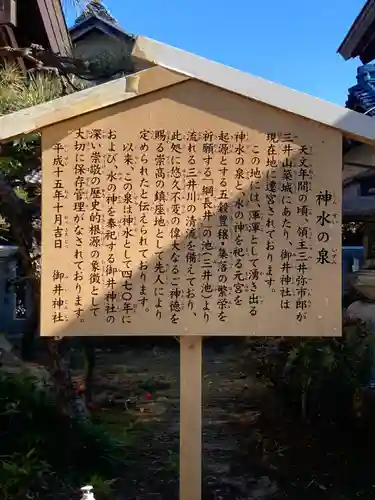 神水の泉
天文年間の頃、領主三井弥市郎が
三井山築城にあたり、御井神社は
現在地に遷宮されております。
この地には、渾渾として湧き出る
神水の泉、水の神を祀る元宮を
起源とする五穀豊穣・集落の繁栄を
祈願する「綱長井」の池(三井池)より
流れる三井川の清流を備えており、
此処に悠久不変の偉大なるご神徳を
賜る崇高の鎮座地として先人により
定められたと伝えられております。
以来、この泉は神水として四七〇年に
および、水の神を奉祀する御井神社の
深い崇敬の歴史的根源の象徴として
大切に保存管理がなされております。
平成十五年十月吉日 御井神社